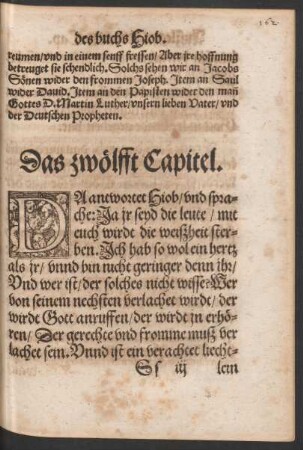 des buchs Hiob.
162
reumen/vnd in einem senff fressen/Aber jre hoffnung
betreuget sie schendlich. Solchs sehen wir an Jacobs
Sönen wider den frommen Joseph. Item an Saul
wider Dauid. Item an den Papisten wider den mañ
Gottes D. Martin Luther/vnsern lieben Vater/vnd
der Deutschen Propheten.
Das zwölfft Capitel.
DA antwortet Hiob/vnd spra-
che: Ja jr seyd die leute/mit
euch wirdt die weißheit ster-
ben. Ich hab so wol ein hertz
als jr/vnnd bin nicht geringer denn ihr/
Vnd wer ist/der solches nicht wisse? Wer
von seinem nechsten verlachet wirdt/der
wirdt Gott anruffen/der wirdt in erhö-
ren/Der gerechte vnd fromme muß ver
lachet sein. Vnnd ist ein verachtet liecht-
Ss iij lein